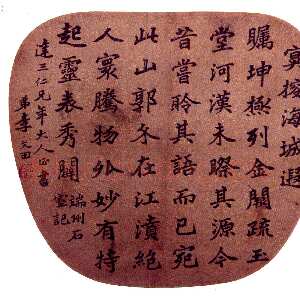 海城遐
矚坤極列金闕疏玉
堂河漢未際其源今
昔嘗聆其語而已宛
此山郭在江濆絕
人寰騰物外妙有特
起靈表秀開
端州石
室記
達三仁兄年大人正書
弟李文田